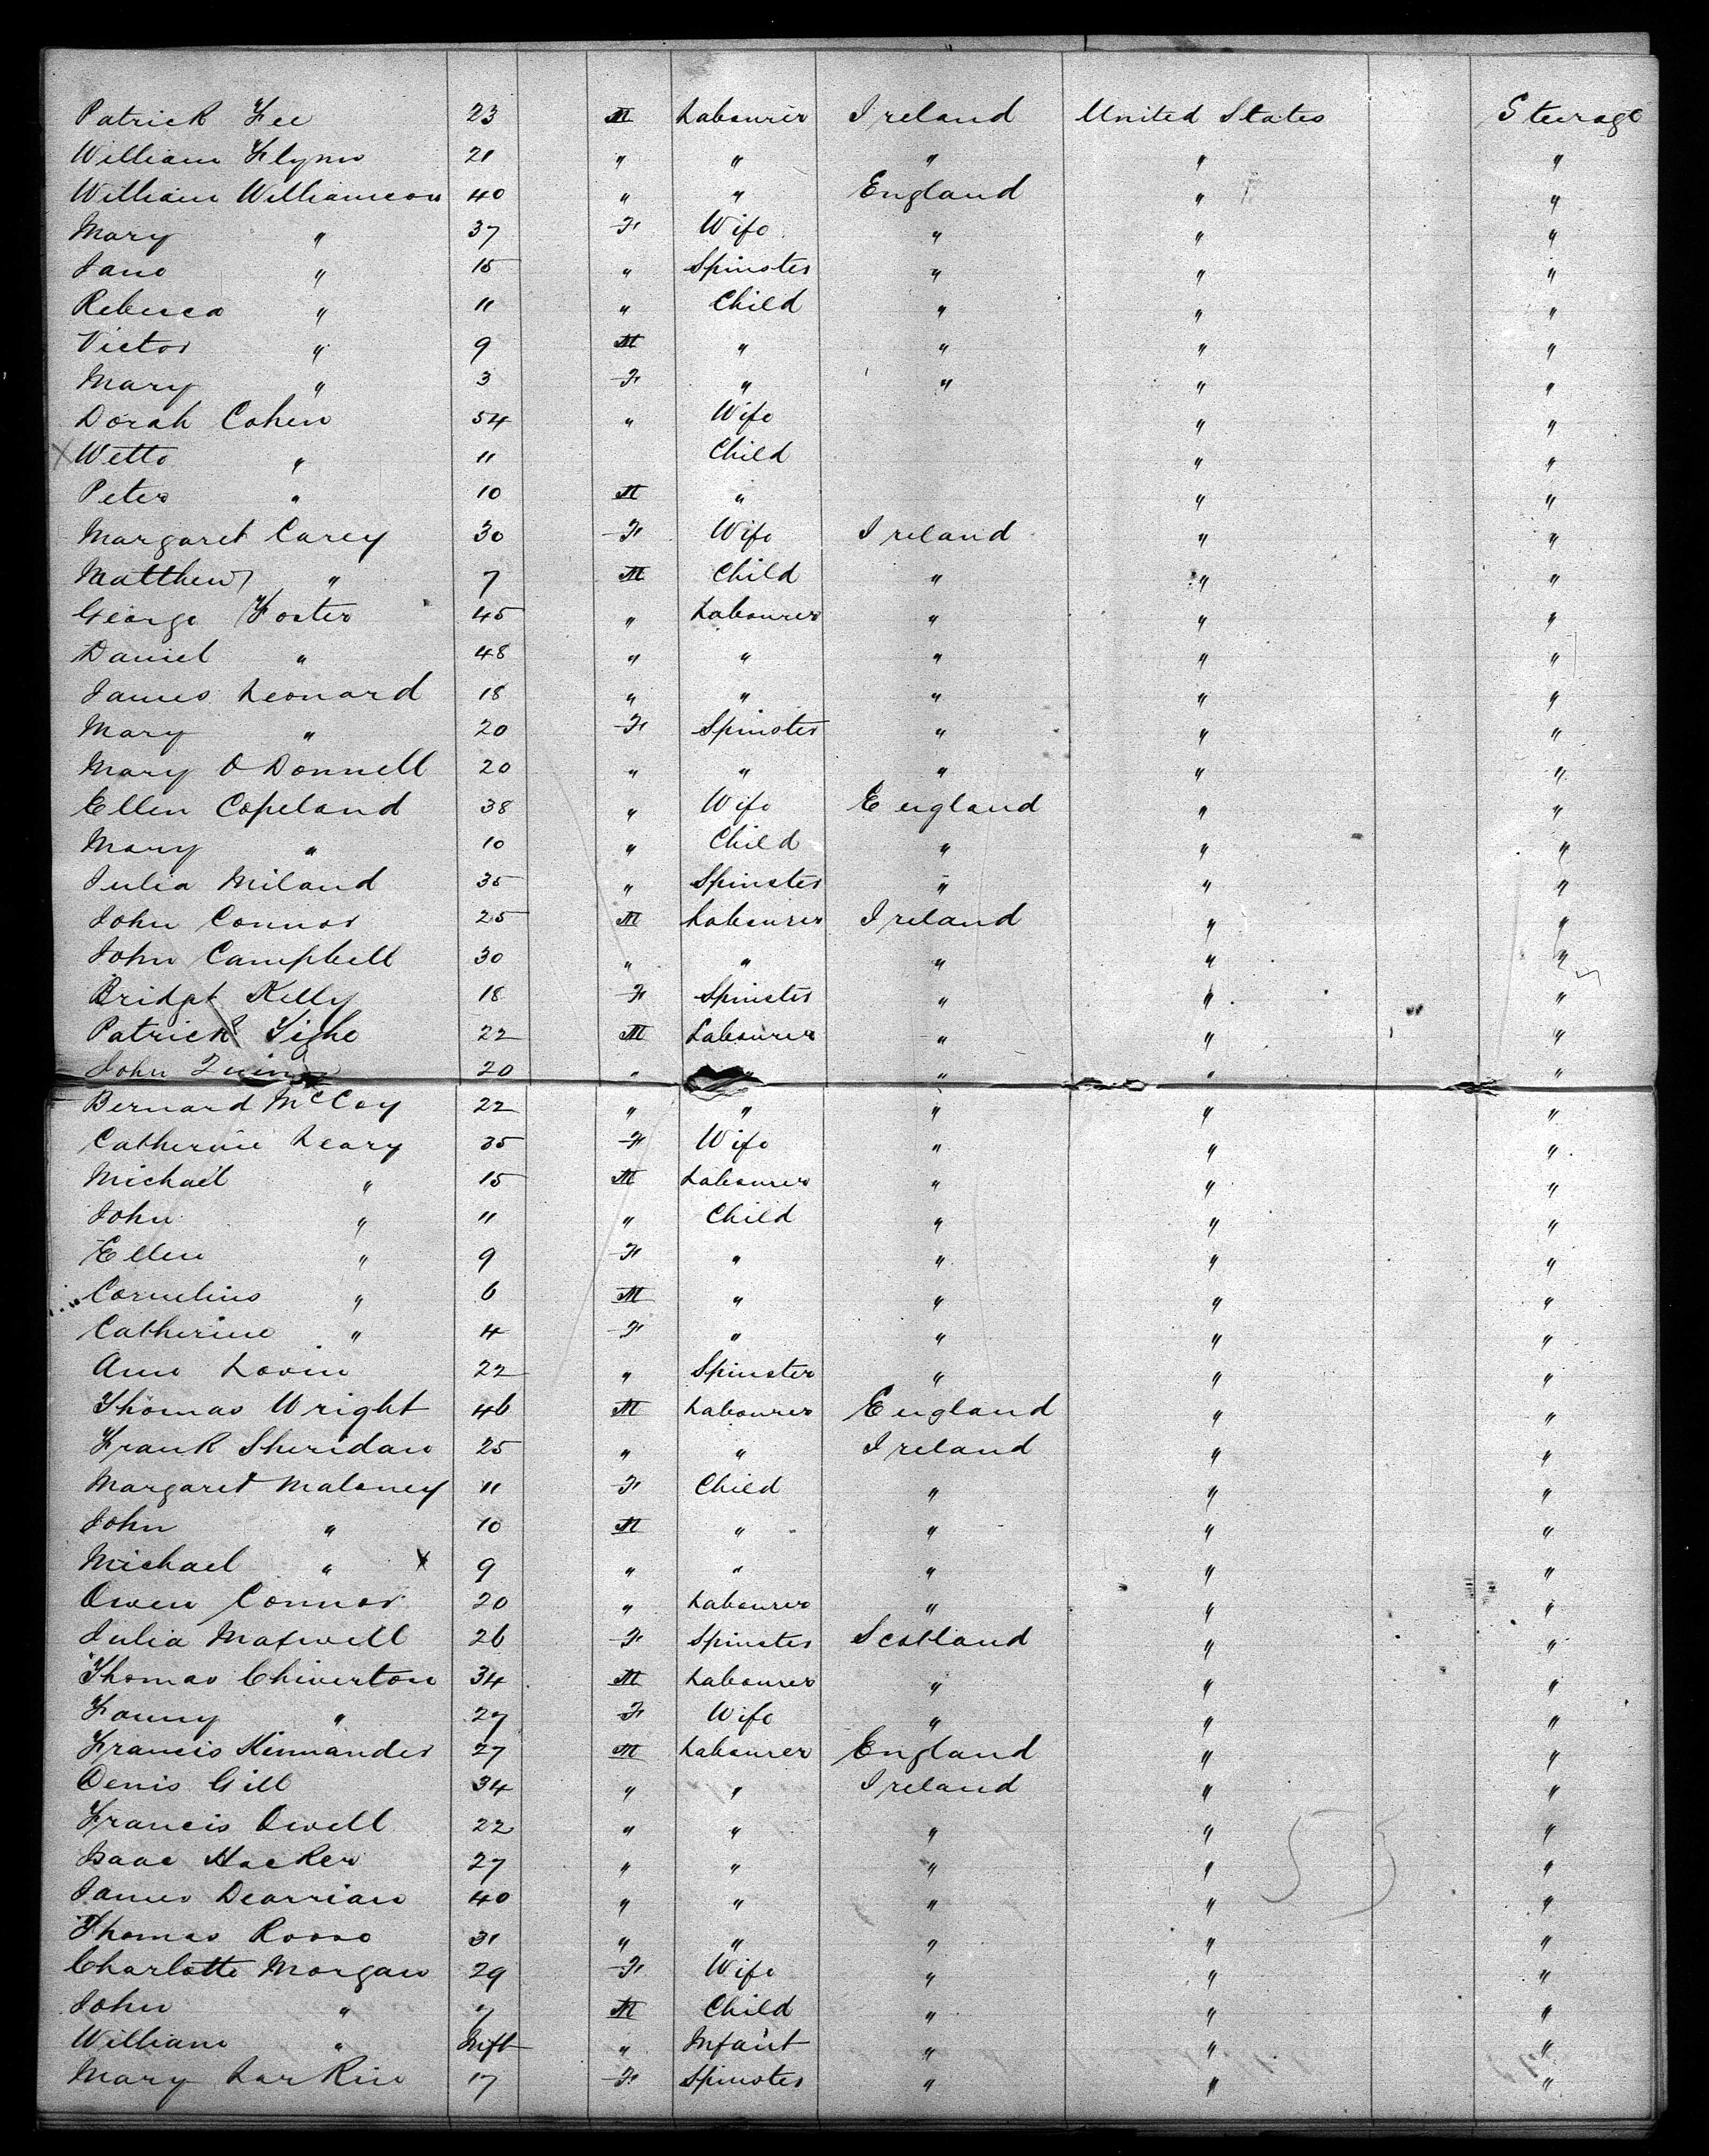 Patrick Fee 23 M Labourer Ireland United States Steerage
William Flynn 21 " " " " "
William Williamson 40 " " England " "
Mary " 37 F Wife " " "
Jane " 15 " Spinster " " "
Rebecca " 11 " Child " " "
Victor " 9 M " " " "
Mary " 3 F " " " "
Dorah Cohen 54 " Wife " "
Wetto " 11 Child " "
Peter " 10 M " " "
Margaret Carey 30 F Wife Ireland " "
Matthew " 7 M Child " " "
George Foster 45 " Labourer " " "
Daniel " 48 " " " " "
James Leonard 18 " " " " "
Mary " 20 F Spinster " " "
Mary O Donnell 20 " " " " "
Ellen Copeland 38 " Wife England " "
Mary " 10 " Child " " "
Julia Miland 35 " Spinster " " "
John Connor 25 M Labourer Ireland " "
John Campbell 30 " " " " "
Bridgt Kelly 18 F Spinster " " "
Patrick Tighe 22 M Labourer " " "
John Quinn 20 " " " " "
Bernard McCoy 22 " " " " "
Catherine Leary 35 F Wife " " "
Michael " 15 M Labourer " " "
John " 11 " Child " " "
Ellen " 9 F " " " "
Cornelius " 6 M " " " "
Catherine " 4 F " " " "
Ann Lavin 22 " Spinster " " "
Thomas Wright 46 M Labourer England " "
Frank Sheridan 25 " " Ireland " "
Margaret Maloney 11 F Child " " "
John " 10 M " " " "
Michael " X 9 " " " " "
Owen Connor 20 " Labourer " " "
Julia Maxwell 26 F Spinster Scotland " "
Thomas Chiverton 34 M Labourer " " "
Fanny " 27 F Wife " " "
Francis Kinnander 27 M Labourer England " "
Denis Gill 34 " " Ireland " "
Francis Owell 22 " " " " "
Isaac Hacker 27 " " " " "
James Dearrian 40 " " " " "
Thomas Rosso 31 " " " " "
Charlotte Morgan 29 F Wife " " "
John " 7 M Child " " "
William " Inft " Infant " " "
Mary Larkin 17 F Spinster " " "